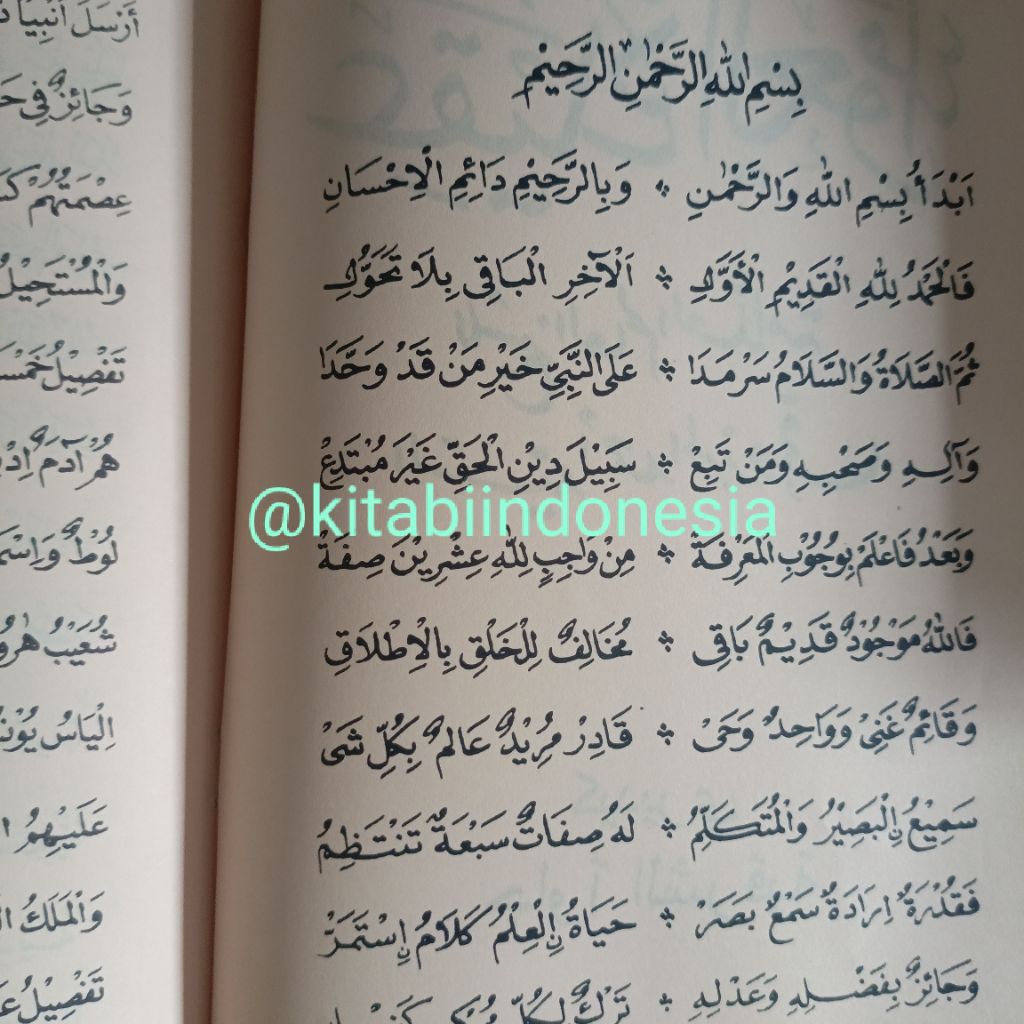 بِسْمِ اللهِ الرَّحْمٰنِ الرَّحِيْمِ
اَبْدَأُ بِسْمِ اللهِ وَالرَّحْمٰنِ ۞ وَبِالرَّحِيْمِ دَائِمِ الْاِحْسَانِ
فَالْحَمْدُ لِلّٰهِ الْقَدِيْمِ الْأَوَّلِ ۞ اَلْآخِرِ الْبَاقِى بِلَا تَحَوُّلِ
ثُمَّ الصَّلَاةُ وَالسَّلَامُ سَرْمَدَا ۞ عَلَى النَّبِيِّ خَيْرِ مَنْ قَدْ وَحَّدَا
وَآلِهِ وَصَحْبِهِ وَمَنْ تَبِعْ ۞ سَبِيْلَ دِيْنِ الْحَقِّ غَيْرَ مُبْتَدِعْ
@kitabiindonesia
وَبَعْدُ فَاعْلَمْ بِوُجُوْبِ الْمَعْرِفَةْ ۞ مِنْ وَاجِبٍ لِلّٰهِ عِشْرِيْنَ صِفَةْ
فَاللهُ مَوْجُوْدٌ قَدِيْمٌ بَاقِى ۞ مُخَالِفٌ لِلْخَلْقِ بِالْاِطْلَاقِ
وَقَائِمٌ غَنِيْ وَوَاحِدٌ وَحَيْ ۞ قَادِرْ مُرِيْدٌ عَالِمٌ بِكُلِّ شَىْ
سَمِيْعٌ ࣙالْبَصِيْرُ وَالْمُتَكَلِّمُ ۞ لَهُ صِفَاتٌ سَبْعَةٌ تَنْتَظِمُ
فَقُدْرَةٌ اِرَادَةٌ سَمْعٌ بَصَرْ ۞ حَيَاةُ ࣙالْعِلْمُ كَلَامُ ࣙاسْتَمَرْ
وَجَائِزٌ بِفَضْلِهِ وَعَدْلِهِ ۞ تَرْكٌ لِكُلِّ
أَرْسَلَ أَنْبِيَا
وَجَائِزٌ فِى
عِصْمَتُهُمْ
وَالْمُسْتَحِيْلُ
تَفْصِيْلُ
هُمْ آدَمٌ
لُوْطٌ
شُعَيْبُ
اِلْيَاسُ
عَلَيْهِمُ
وَالْمَلَكُ
تَفْصِيْلُ